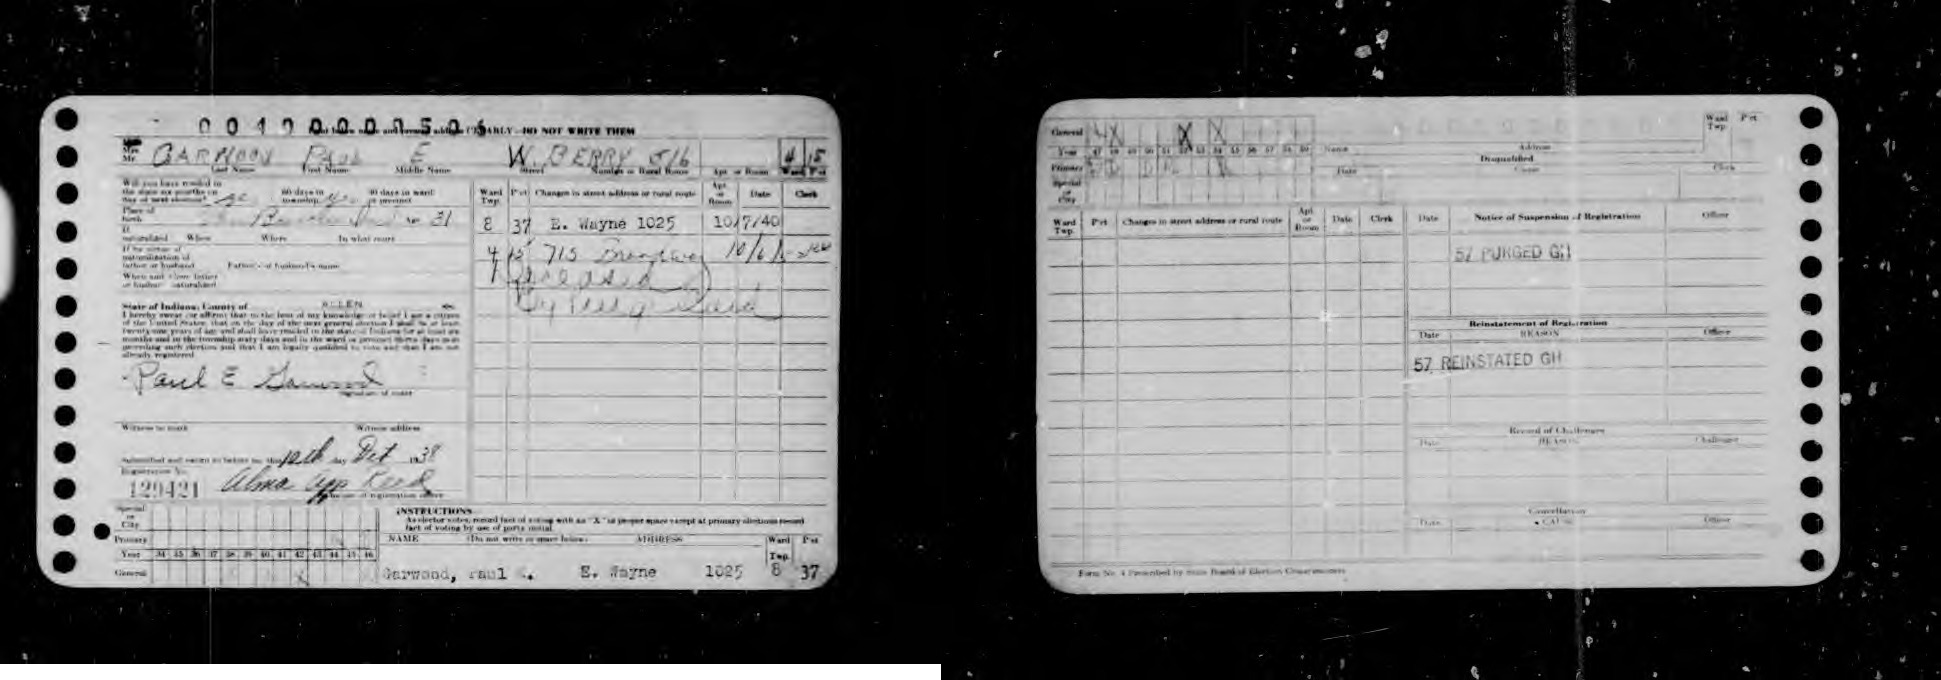 Print below name and former address CLEARLY—DO NOT WRITE THEM
Mrs.
Mr. GARWOOD PAUL E W. BERRY 516 4 15
Last Name First Name Middle Name Street Number or Rural Route Apt. or Room Ward Pct
Will you have resided in
the state six months on 60 days in 30 days in ward
day of next election? township or precinct
Place of
birth Age 31
If
naturalized When Where In what court
If by virtue of
naturalization of
father or husband Father's or husband's name
When and where father
or husband naturalized
State of Indiana, County of ALLEN ss:
I hereby swear (or affirm) that to the best of my knowledge or belief I am a citizen
of the United States, that on the day of the next general election I shall be at least
twenty-one years of age and shall have resided in the state of Indiana for at least six
months and in the township sixty days and in the ward or precinct thirty days next
preceding such election and that I am legally qualified to vote and that I am not
already registered
Paul E Garwood
Signature of voter
Witness to mark Witness address
Subscribed and sworn to before me this 12th day Oct 1938
Registration No.
129421 Alma App Reed
Signature of registration officer
Ward Twp. Pct Changes in street address or rural route Apt. or Room Date Clerk
8 37 E. Wayne 1025 10/7/40
4 15 715 Broadway
Deceased
Special
or
City
Primary
Year 34 35 36 37 38 39 40 41 42 43 44 45 46
General
INSTRUCTIONS
As elector votes, record fact of voting with an "X" in proper space except at primary elections record
fact of voting by use of party initial.
NAME (Do not write in space below) ADDRESS Ward Twp. Pct
Garwood, Paul E. E. Wayne 1025 8 37
General X X X X
Year 47 48 49 50 51 52 53 54 55 56 57 58 59
Primary
Special
or
City
Ward Twp. Pct
Name Address
Disqualified
Date Cause Clerk
Ward Twp. Pct Changes in street address or rural route Apt. or Room Date Clerk
Date Notice of Suspension of Registration Officer
57 PURGED GH
Reinstatement of Registration
Date REASON Officer
57 REINSTATED GH
Record of Challenges
Date REASON Challenger
Cancellation
Date CAUSE Officer
Form No. 4 Prescribed by State Board of Election Commissioners